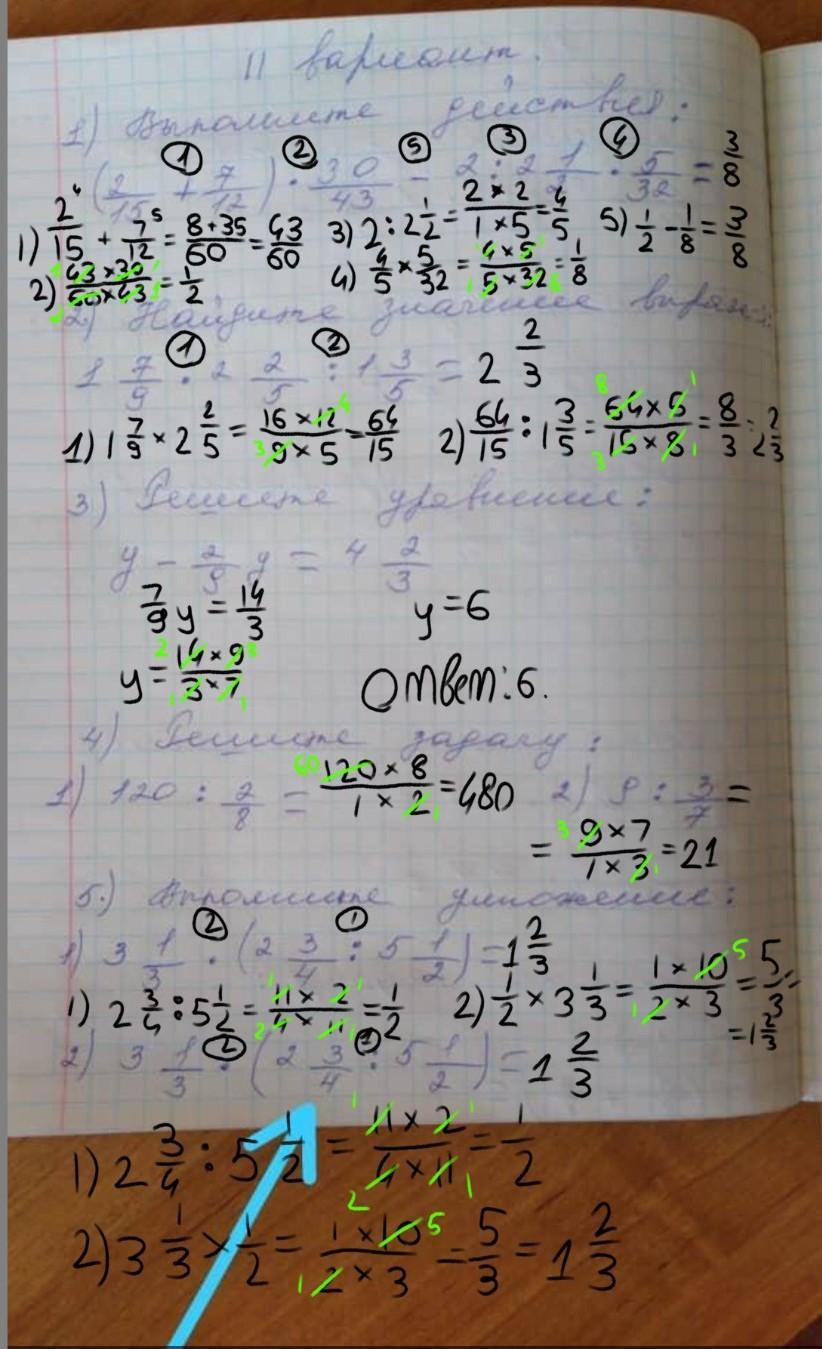 II вариант.
1) Выполните действия:
(2/15 + 7/12) · 30/43 - 2 : 2 1/2 · 5/32 = 3/8
1) 2/15 + 7/12 = 8+35/60 = 43/60 3) 2 : 2 1/2 = 2×2/1×5 = 4/5 5) 1/2 - 1/8 = 3/8
2) 43×30/60×43 = 1/2 4) 4/5 × 5/32 = 4×5/5×32 = 1/8
2) Найдите значение выраж.:
1 7/9 · 2 2/5 : 1 3/5 = 2 2/3
1) 1 7/9 × 2 2/5 = 16×12/9×5 = 64/15 2) 64/15 : 1 3/5 = 64×5/15×8 = 8/3 = 2 2/3
3) Решите уравнение:
y - 2/9 y = 4 2/3
7/9 y = 14/3 y = 6
y = 14×9/3×7 Ответ: 6.
4) Решите задачу:
1) 120 : 2/8 = 120×8/1×2 = 480 2) 9 : 3/7 =
= 9×7/1×3 = 21
5.) Выполните умножение:
1) 3 1/3 · (2 3/4 : 5 1/2) = 1 2/3
1) 2 3/4 : 5 1/2 = 11×2/4×11 = 1/2 2) 1/2 × 3 1/3 = 1×10/2×3 = 5/3 =
= 1 2/3
2) 3 1/3 · (2 3/4 : 5 1/2) = 1 2/3
1) 2 3/4 : 5 1/2 = 11×2/4×11 = 1/2
2) 3 1/3 × 1/2 = 1×10/2×3 = 5/3 = 1 2/3